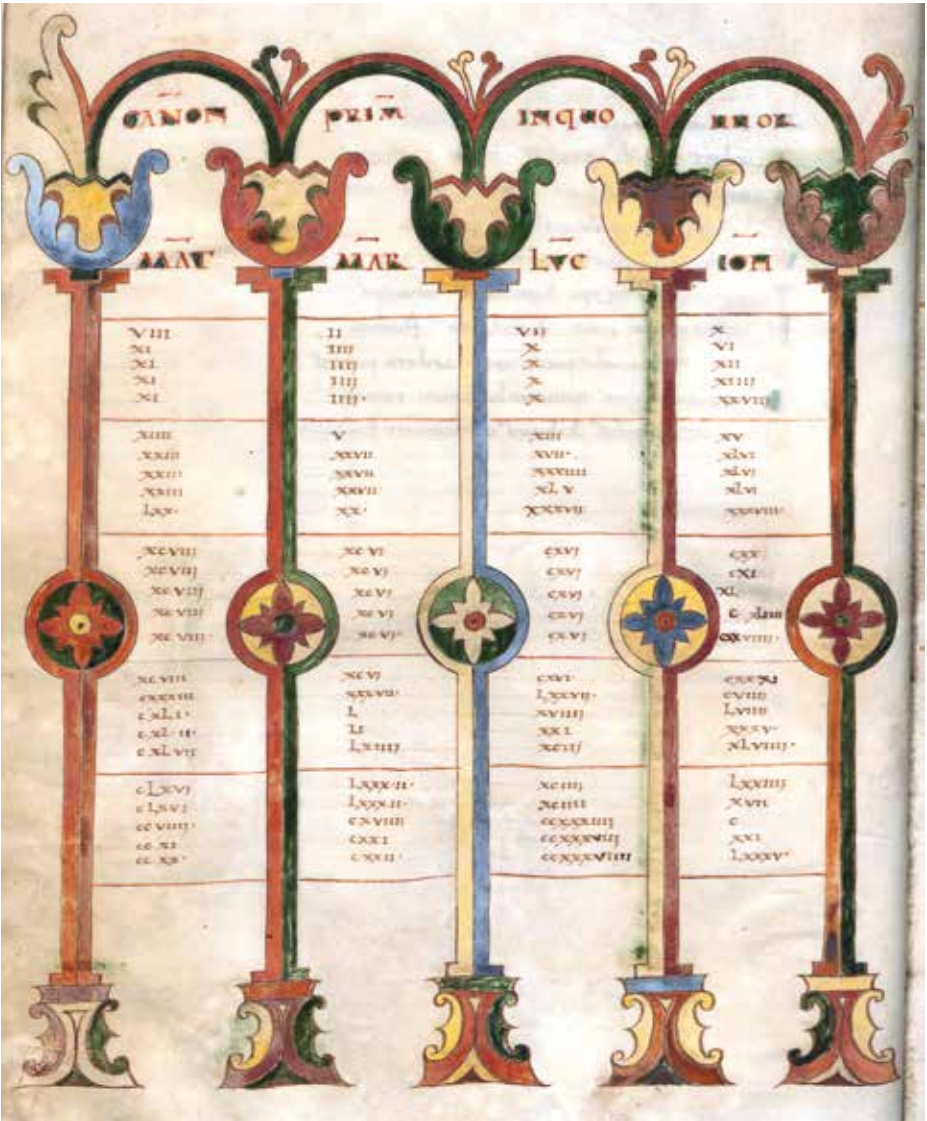 CANON PRIM INQUO
MAT MAR LVC IOH
VIII II VII X
XI IIII X VI
XI IIIJ X XII
XI IIIJ X XIIII
XI IIIJ· X XXVIIJ
XIIII V XIII XV
XXIII XXVII XVII· XLVI
XXIII XXVII XXXIIII XLVI
XXIII XXVII XLV XLVI
LXX· XX· XXXVII XXXVIII·
XCVIIJ XCVJ CXVJ CXX
XCVIIJ XCVJ CXVJ CXI
XCVIIJ XCVJ CXVJ XL
XCVIIJ XCVI CXVJ
XCVIII· XCVJ· CXVJ CXXVIIII·
XCVIII XCVJ CXVI· CXXXI
CXXXIII XXXVII· LXXVII· CVIIII
CXLI· L XVIIIJ LVIIII
CXLII· LI XXI XXXV·
CXLVII LXIIIJ XCIIJ XLVIIII·
CLXVI LXXXII· XCIIIJ LXXIIIJ
CLXVI LXXXII· XCIIII XVII
CCVIIII· CXVIIIJ CCXXXIIIJ C
CCXI CXXI CCXXXVIIIJ XXI
CCXX· CXXII· CCXXXVIIII LXXXV·